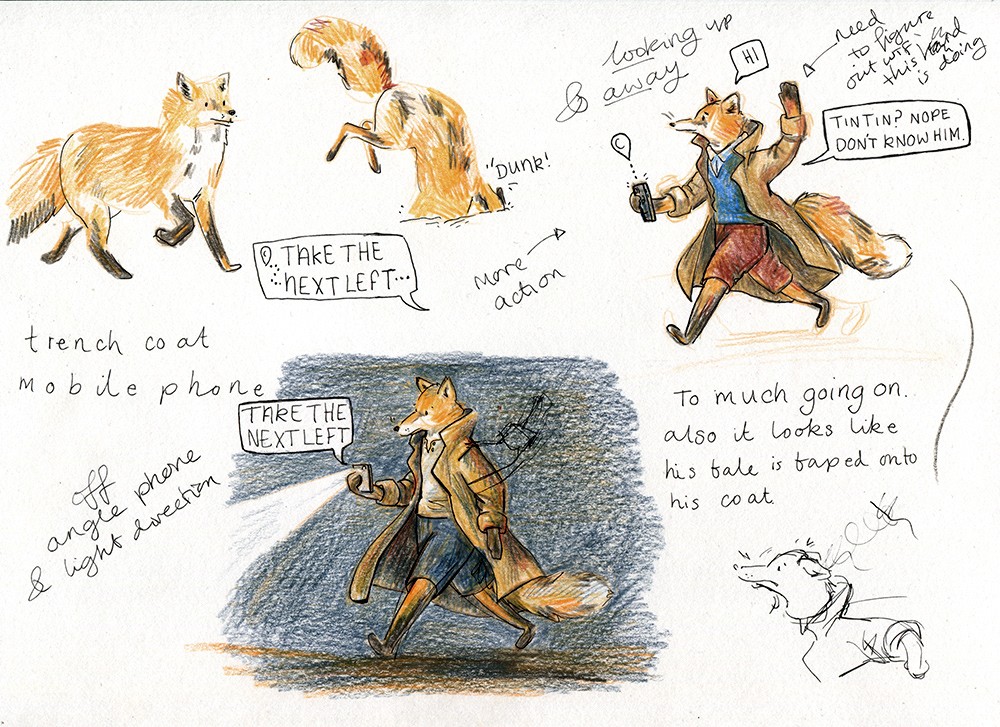 looking up
& away
need
to figure
out wtf
this hand
is doing
HI
TINTIN? NOPE
DON'T KNOW HIM.
C
"DUNK!
TAKE THE
NEXT LEFT...
More
action
trench coat
mobile phone
TAKE THE
NEXT LEFT
off
angle phone
& light direction
To much going on..
also it looks like
his tale is taped onto
his coat.